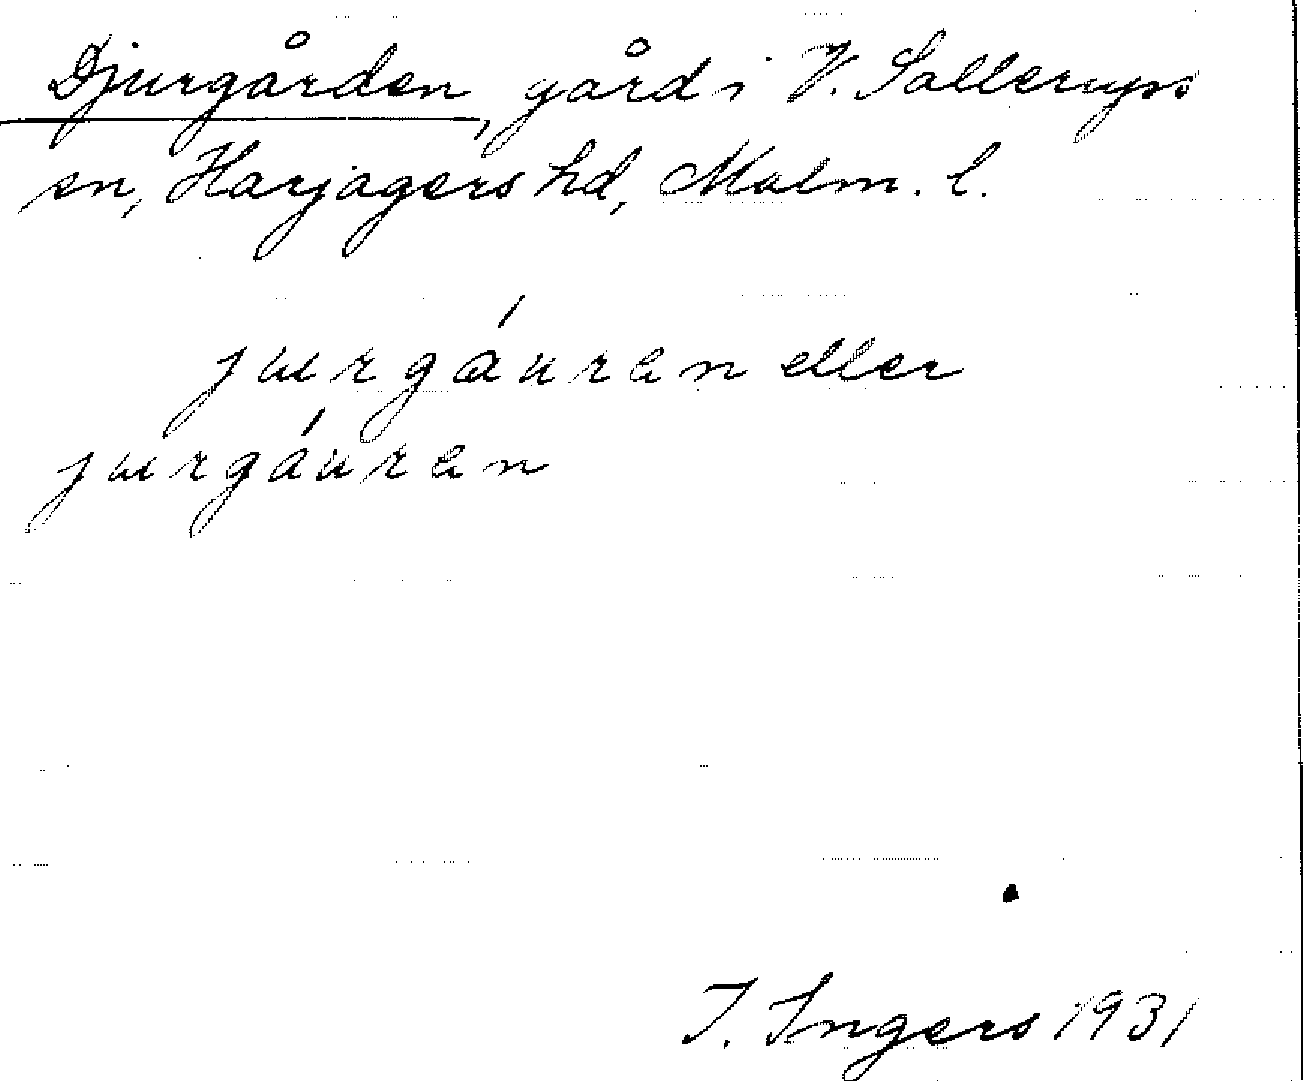 Djurgården, gård i V. Sallerups
sn, Harjagers hd, Malm. l.
jurgáuran eller
jurgáuran
I. Ingers 1931